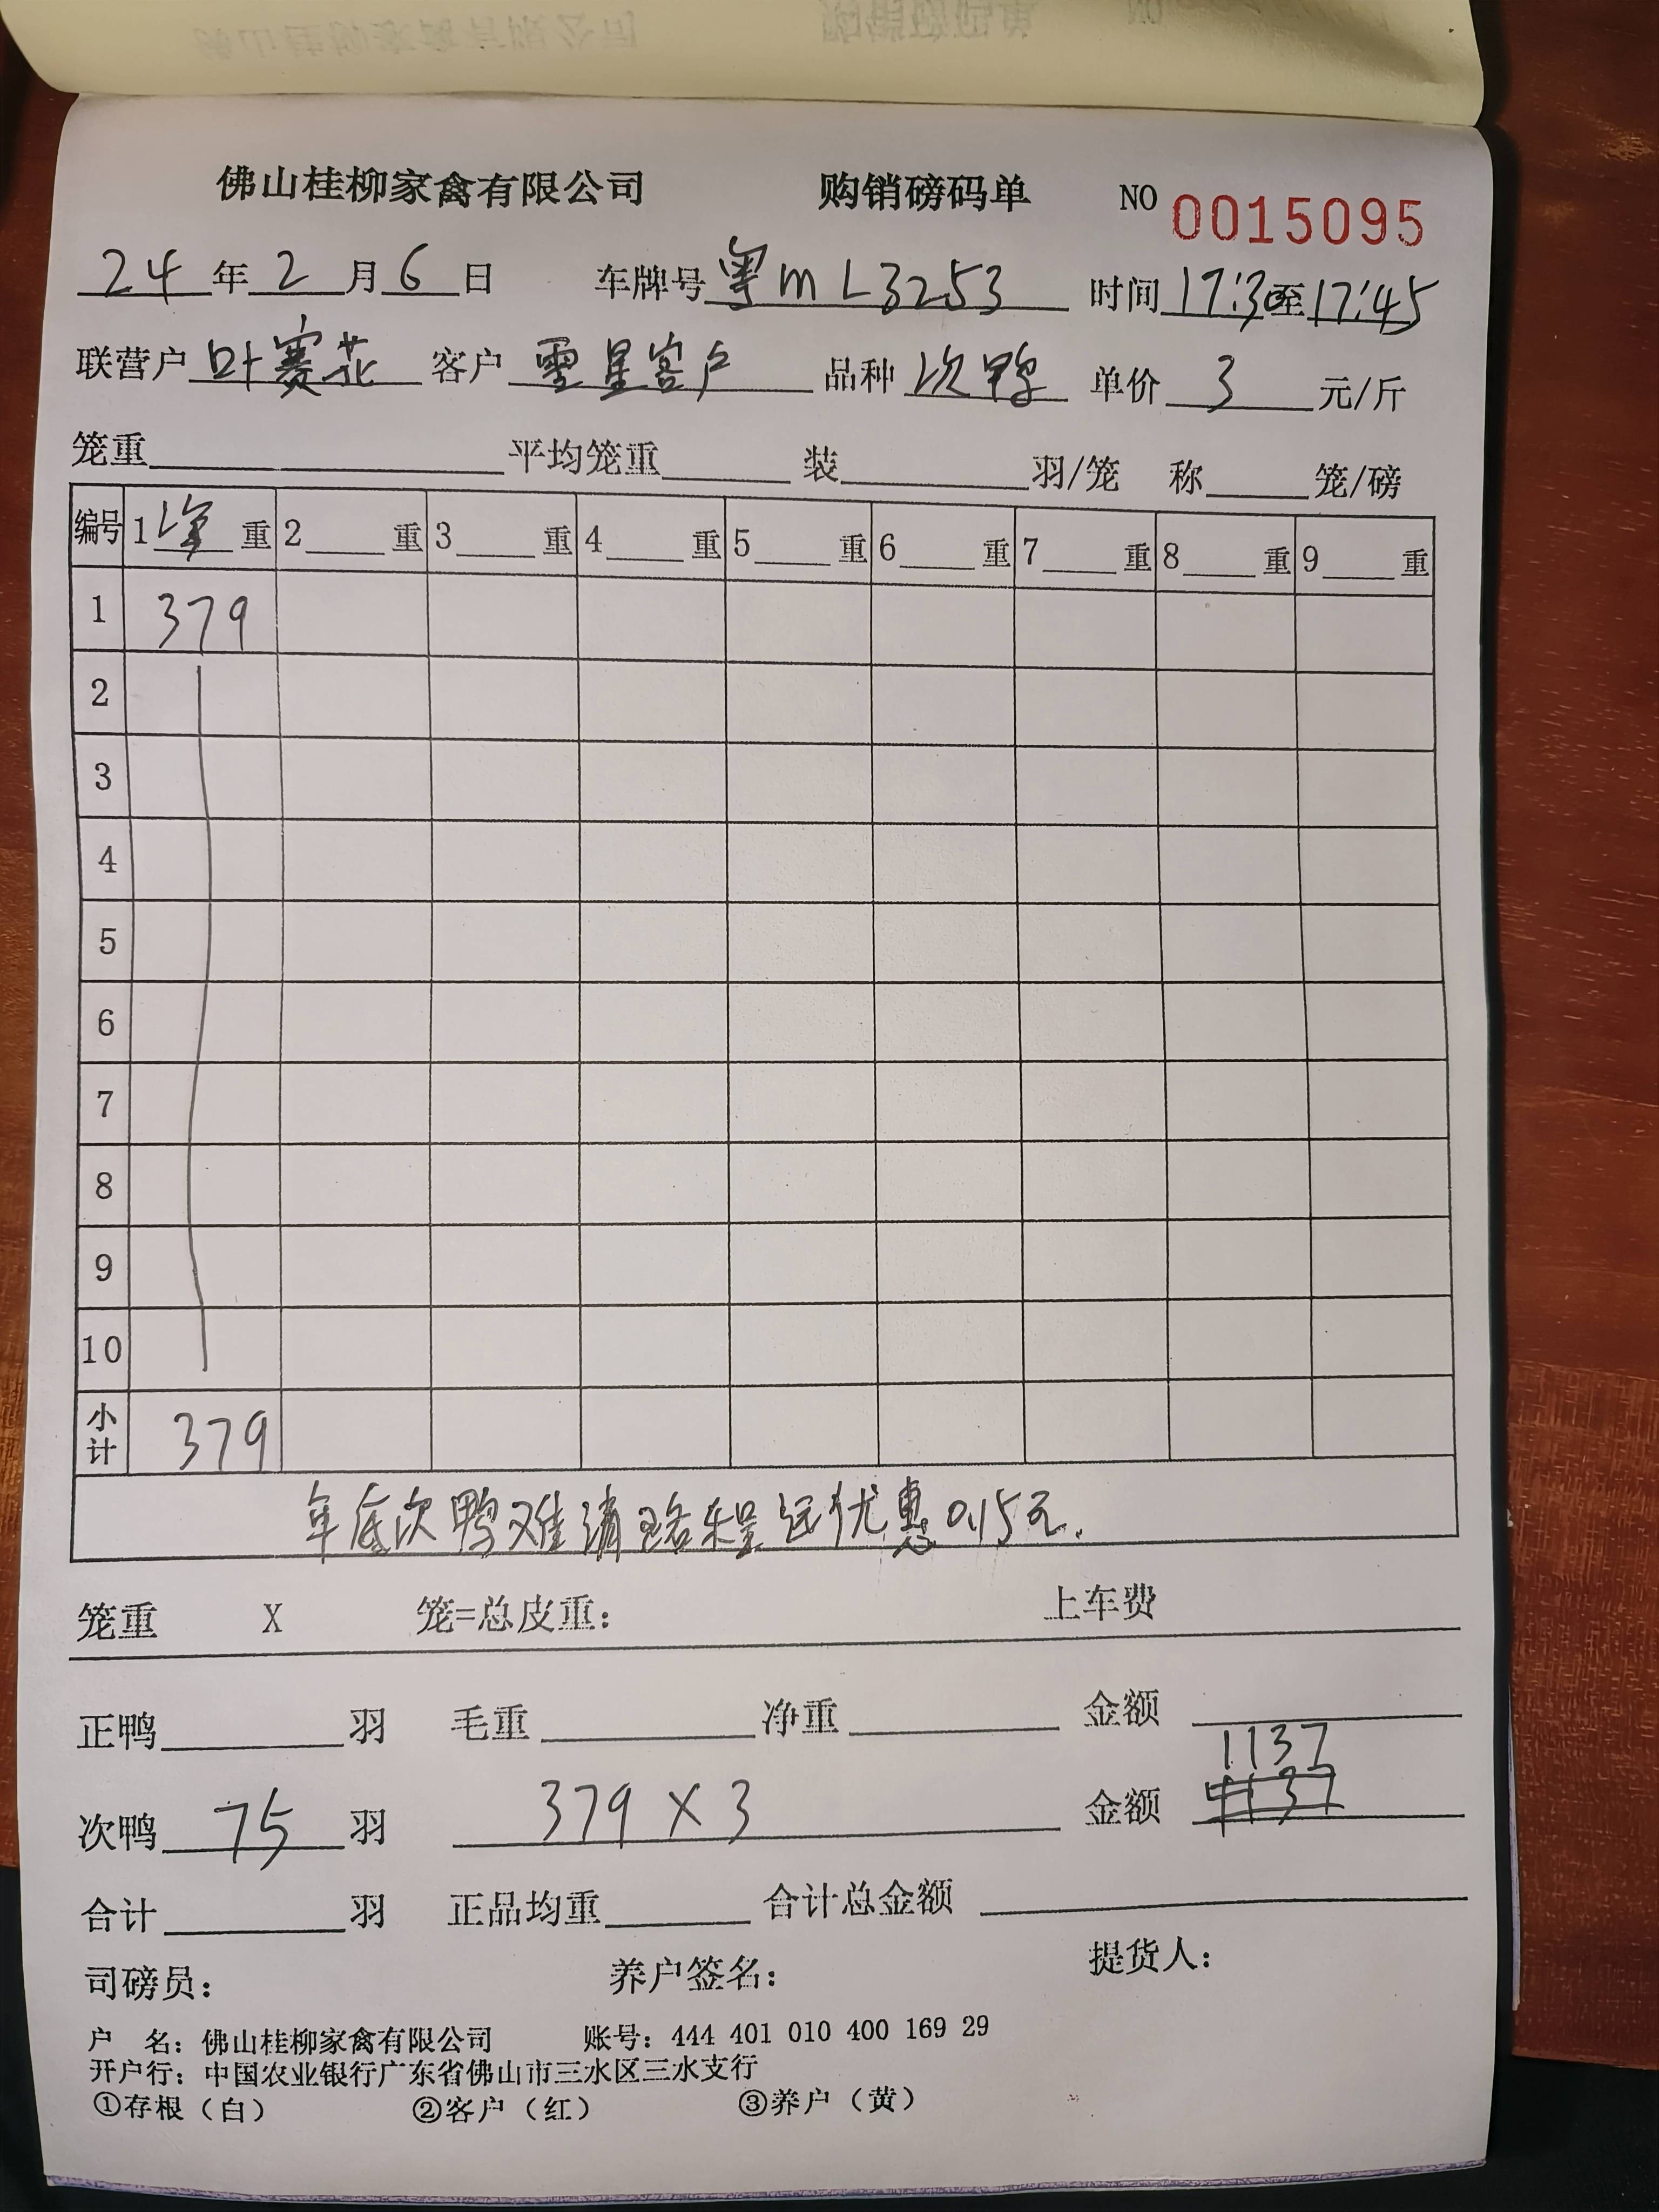 佛山桂柳家禽有限公司 购销磅码单 NO 0015095
24年2月6日 车牌号粤mL3253 时间17:30至17:45
联营户叶赛花 客户零星客户 品种次鸭 单价3元/斤
笼重 平均笼重 装 羽/笼 称 笼/磅
编号 1净重 2 重 3 重 4 重 5 重 6 重 7 重 8 重 9 重
1 379
2
3
4
5
6
7
8
9
10
小计 379
年底次鸭难销路程远优惠0.15元.
笼重 X 笼=总皮重: 上车费
正鸭 羽 毛重 净重 金额
1137
次鸭75羽 379×3 金额
合计 羽 正品均重 合计总金额
司磅员: 养户签名: 提货人:
户 名: 佛山桂柳家禽有限公司 账号: 444 401 010 400 169 29
开户行: 中国农业银行广东省佛山市三水区三水支行
①存根（白） ②客户（红） ③养户（黄）